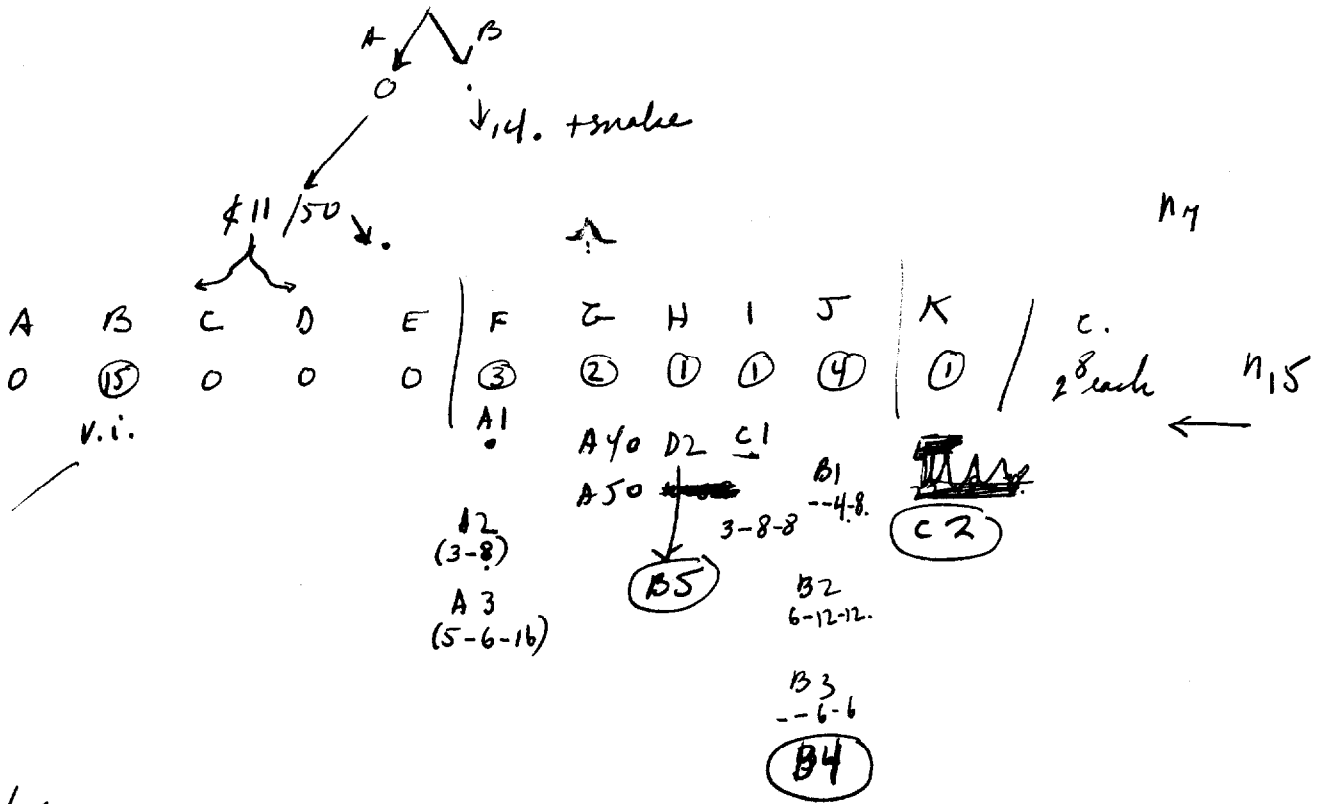 A B
0 .
14. + snake
¢11 /50 .
n7
A B C D E F G H I J K c.
0 15 0 0 0 3 2 1 1 4 1 28 each n15
v.i. A1
A40 D2 C1
A50 B1
--4-8.
A2 3-8-8 C2
(3-8)
B5 B2
A3 6-12-12.
(5-6-16)
B3
--6-6
B4